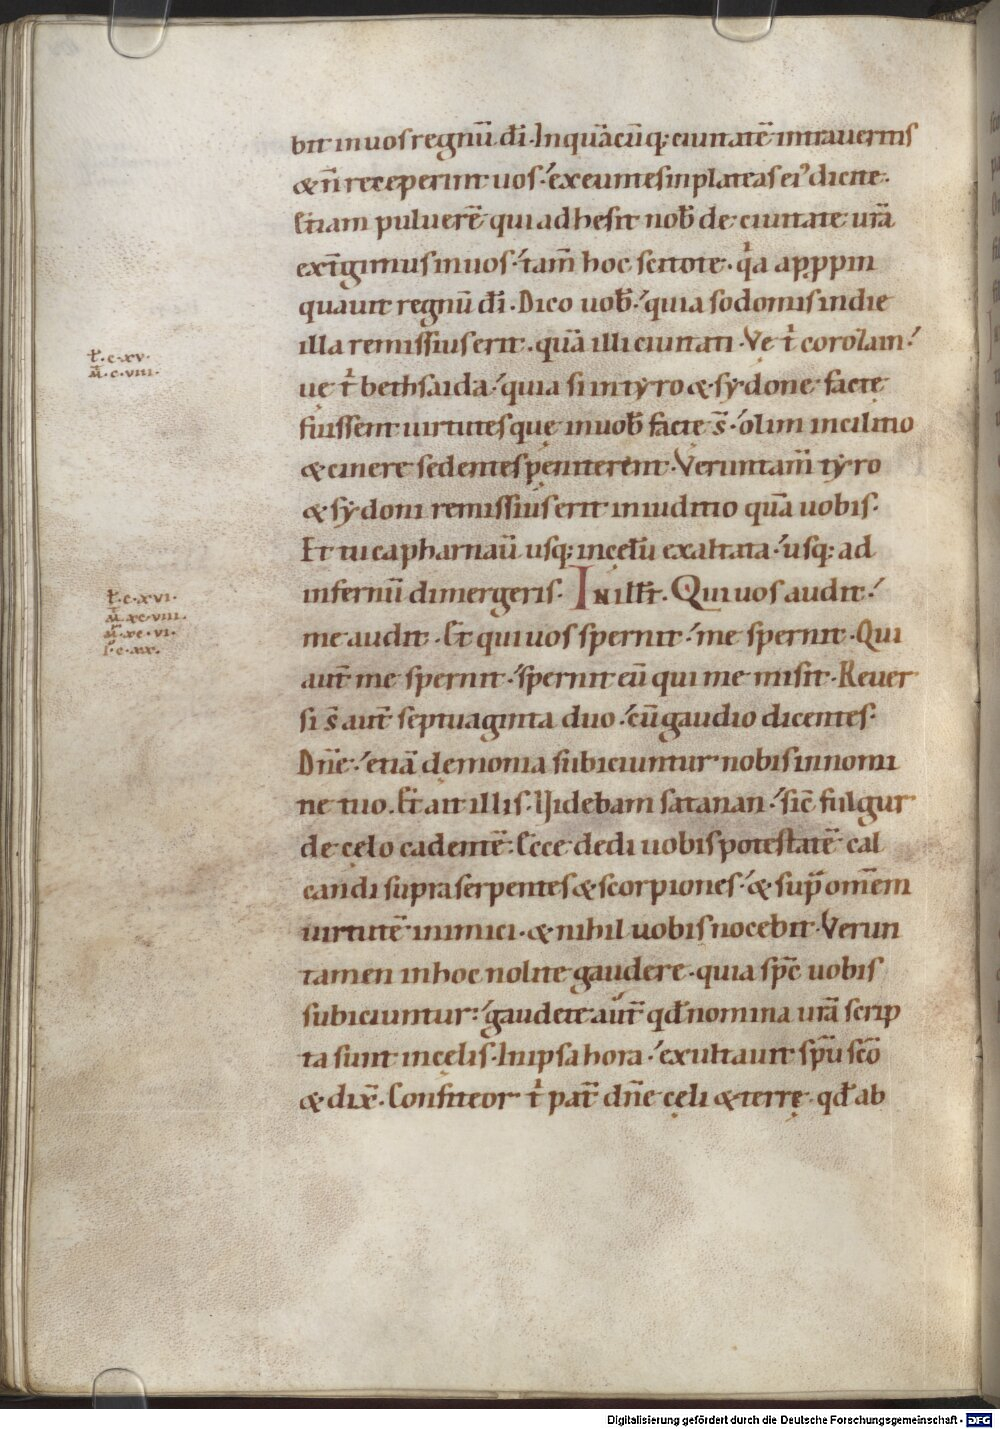 bit in uos regnū dī. In quācūq; ciuitatē intraueritis
& n̄ receperint uos. exeuntes in plateas ei᾽ dicite.
Etiam puluerē qui adhesit nob̄ de ciuitate urā
ext̄gimus in uos. tam̄ hoc scitote. q̇a appropin
quauit regnū dī. Dico uob̄. quia sodomis in die
illa remissius erit. quā illi ciuitati. Ve ṫ corozain.
t̄.c.xv.
m̄.c.viii.
ue ṫ bethsaida. quia si in tyro & sydone factę
fuissent uirtutes quę in uob̄ factę s̄. olim in cilitio
& cinere sedentes pęniterent. Veruntam̄ tyro
& sydoni remissius erit in iuditio quā uobis.
Et tu capharnaū usq; in cęlū exaltata. usq; ad
infernū dimergeris. In ill̄t. Qui uos audit.
t̄.c.xvi.
m̄.xc.viii.
m̄.xc.vi.
ī.c.xx.
me audit. Et qui uos spernit. me spernit. Qui
aut̄ me spernit. spernit eū qui me misit. Reuer
si s̄ aut̄ septuaginta duo. cū gaudio dicentes.
Dn̄e. etiā dęmonia subiciuntur nobis in nomi
ne tuo. Et ait illis. Videbam satanan. sic̄ fulgur
de cęlo cadentē. Ecce dedi uobis potestatē cal
candi supra serpentes & scorpiones. & sup̄ om̄em
uirtutē inimici. & nihil uobis nocebit. Verun
tamen in hoc nolite gaudere. quia sp̄c uobis
subiciuntur. gaudete aut̄ qd̄ nomina urā scrip
ta sunt in cęlis. In ipsa hora. exultauit sp̄u scō
& dix̄. Confiteor ṫ pat̄ dn̄e cęli & terrę. qd̄ ab
Digitalisierung gefördert durch die Deutsche Forschungsgemeinschaft - DFG